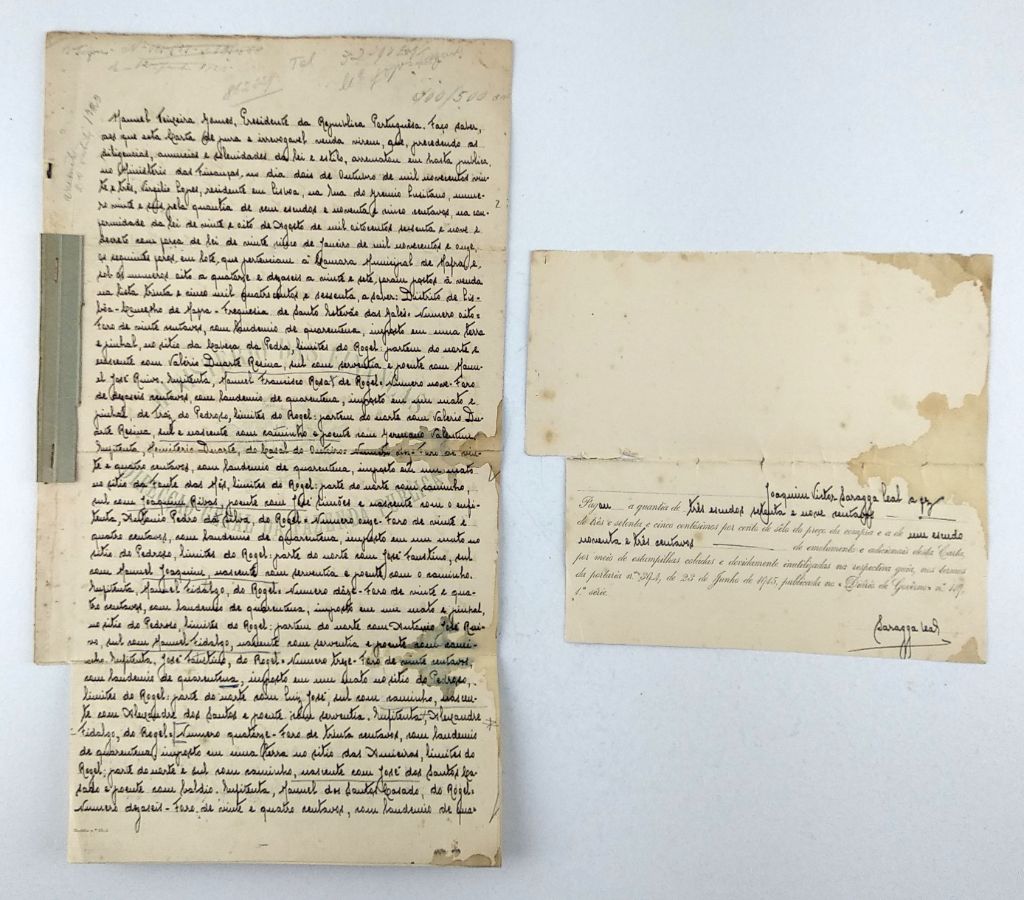 Tel
500/500
Manuel Teixeira Gomes, Presidente da Republica Portuguêsa. Faço saber,
aos que esta Carta de pura e irrevogavel venda virem, que, precedendo as
diligencias, anuncios e solenidades da lei e estilo, arrematou em hasta publica,
no Ministério das Finanças, no dia dois de Outubro de mil novecentos vin-
te e três, Virgilio Lopes, residente em Lisboa, na Rua do Gremio Lusitano, nume-
ro vinte e seis, pela quantia de cem escudos e noventa e cinco centavos, na con-
formidade da lei de vinte e oito de Agosto de mil oitocentos sessenta e nove e
decreto com força de lei de vinte cinco de Janeiro de mil novecentos e onze,
os seguintes foros, em lote, que pertenciam á Camara Municipal de Mafra e,
sob os numeros oito a quatorze e dezaseis a vinte e sete, foram postos á venda
na lista trinta e cinco mil quatrocentos e sessenta, a saber: Distrito de Lis-
bôa - Concelho de Mafra - Freguesia de Santo Estevão das Galés - Numero oito -
Foro de vinte centavos, com laudemio de quarentena, imposto em uma terra
e pinhal, no sitio da Cabeça da Pedra, limites do Rogel: partem do norte e
nascente com Valério Duarte Resina, sul com serventia e poente com Manu-
el José Ruivo. Enfiteuta, Manuel Francisco Rosa, de Rogel - Numero nove - Foro
de dezaseis centavos, com laudemio de quarentena, imposto em um mato e
pinhal, de traz do Pedroso, limites do Rogel: partem do norte com Valerio Du-
arte Resina, sul e nascente com caminho e poente com Germano Valentim.
Enfiteuta, Monitério Duarte, do Casal do Outeiro - Numero dez - Foro de vin-
te e quatro centavos, com laudemio de quarentena, imposto em um mato
no sitio da Fonte das Mós, limites do Rogel: parte do norte com caminho,
sul com Joaquim Rivas, poente com José Simões e nascente com o enfi-
teuta, Antonio Pedro da Silva, do Rogel - Numero onze - Foro de vinte e
quatro centavos, com laudemio de quarentena, imposto em um mato no
sitio do Pedroso, limites do Rogel: parte do norte com José Faustino, sul
com Manuel Joaquim, nascente com serventia e poente com o caminho.
Enfiteuta, Manuel Fidalgo, do Rogel - Numero dôze - Foro de vinte e qua-
tro centavos, com laudemio de quarentena, imposto em um mato e pinhal,
no sitio do Pedroso, limites do Rogel: partem do norte com Antonio José Rui-
vo, sul com Manuel Fidalgo, nascente com serventia e poente com cami-
nho. Enfiteuta, José Faustino, do Rogel - Numero treze - Foro de vinte centavos,
com laudemio de quarentena, imposto em um mato no sitio do Pedroso,
limites do Rogel: parte do norte com Luiz José, sul com caminho, nascen-
te com Alexandre dos Santos e poente com serventia. Enfiteuta, Alexandre
Fidalgo, do Rogel - Numero quatorze - Foro de trinta centavos, com laudemio
de quarentena, imposto em uma terra no sitio das Amieiras, limites do
Rogel: parte do norte e sul com caminho, nascente com José dos Santos Ca-
sado e poente com baldio. Enfiteuta, Manuel dos Santos Casado, do Rogel -
Numero dezaseis - Foro de vinte e quatro centavos, com laudemio de qua-
Joaquim Victor Saragga Leal a fz
Pagou a quantia de três escudos setenta e nove centavos
de três e setenta e cinco centésimos por cento de sêlo do preço da compra e a de um escudo
noventa e três centavos de emolumentos e adicionais desta Carta,
por meio de estampilhas coladas e devidamente inutilizadas na respectiva guia, nos termos
da portaria n.º 394, de 23 de Junho de 1915, publicada no «Diário do Govêrno» n.º 119,
1.ª série.
Saragga Leal